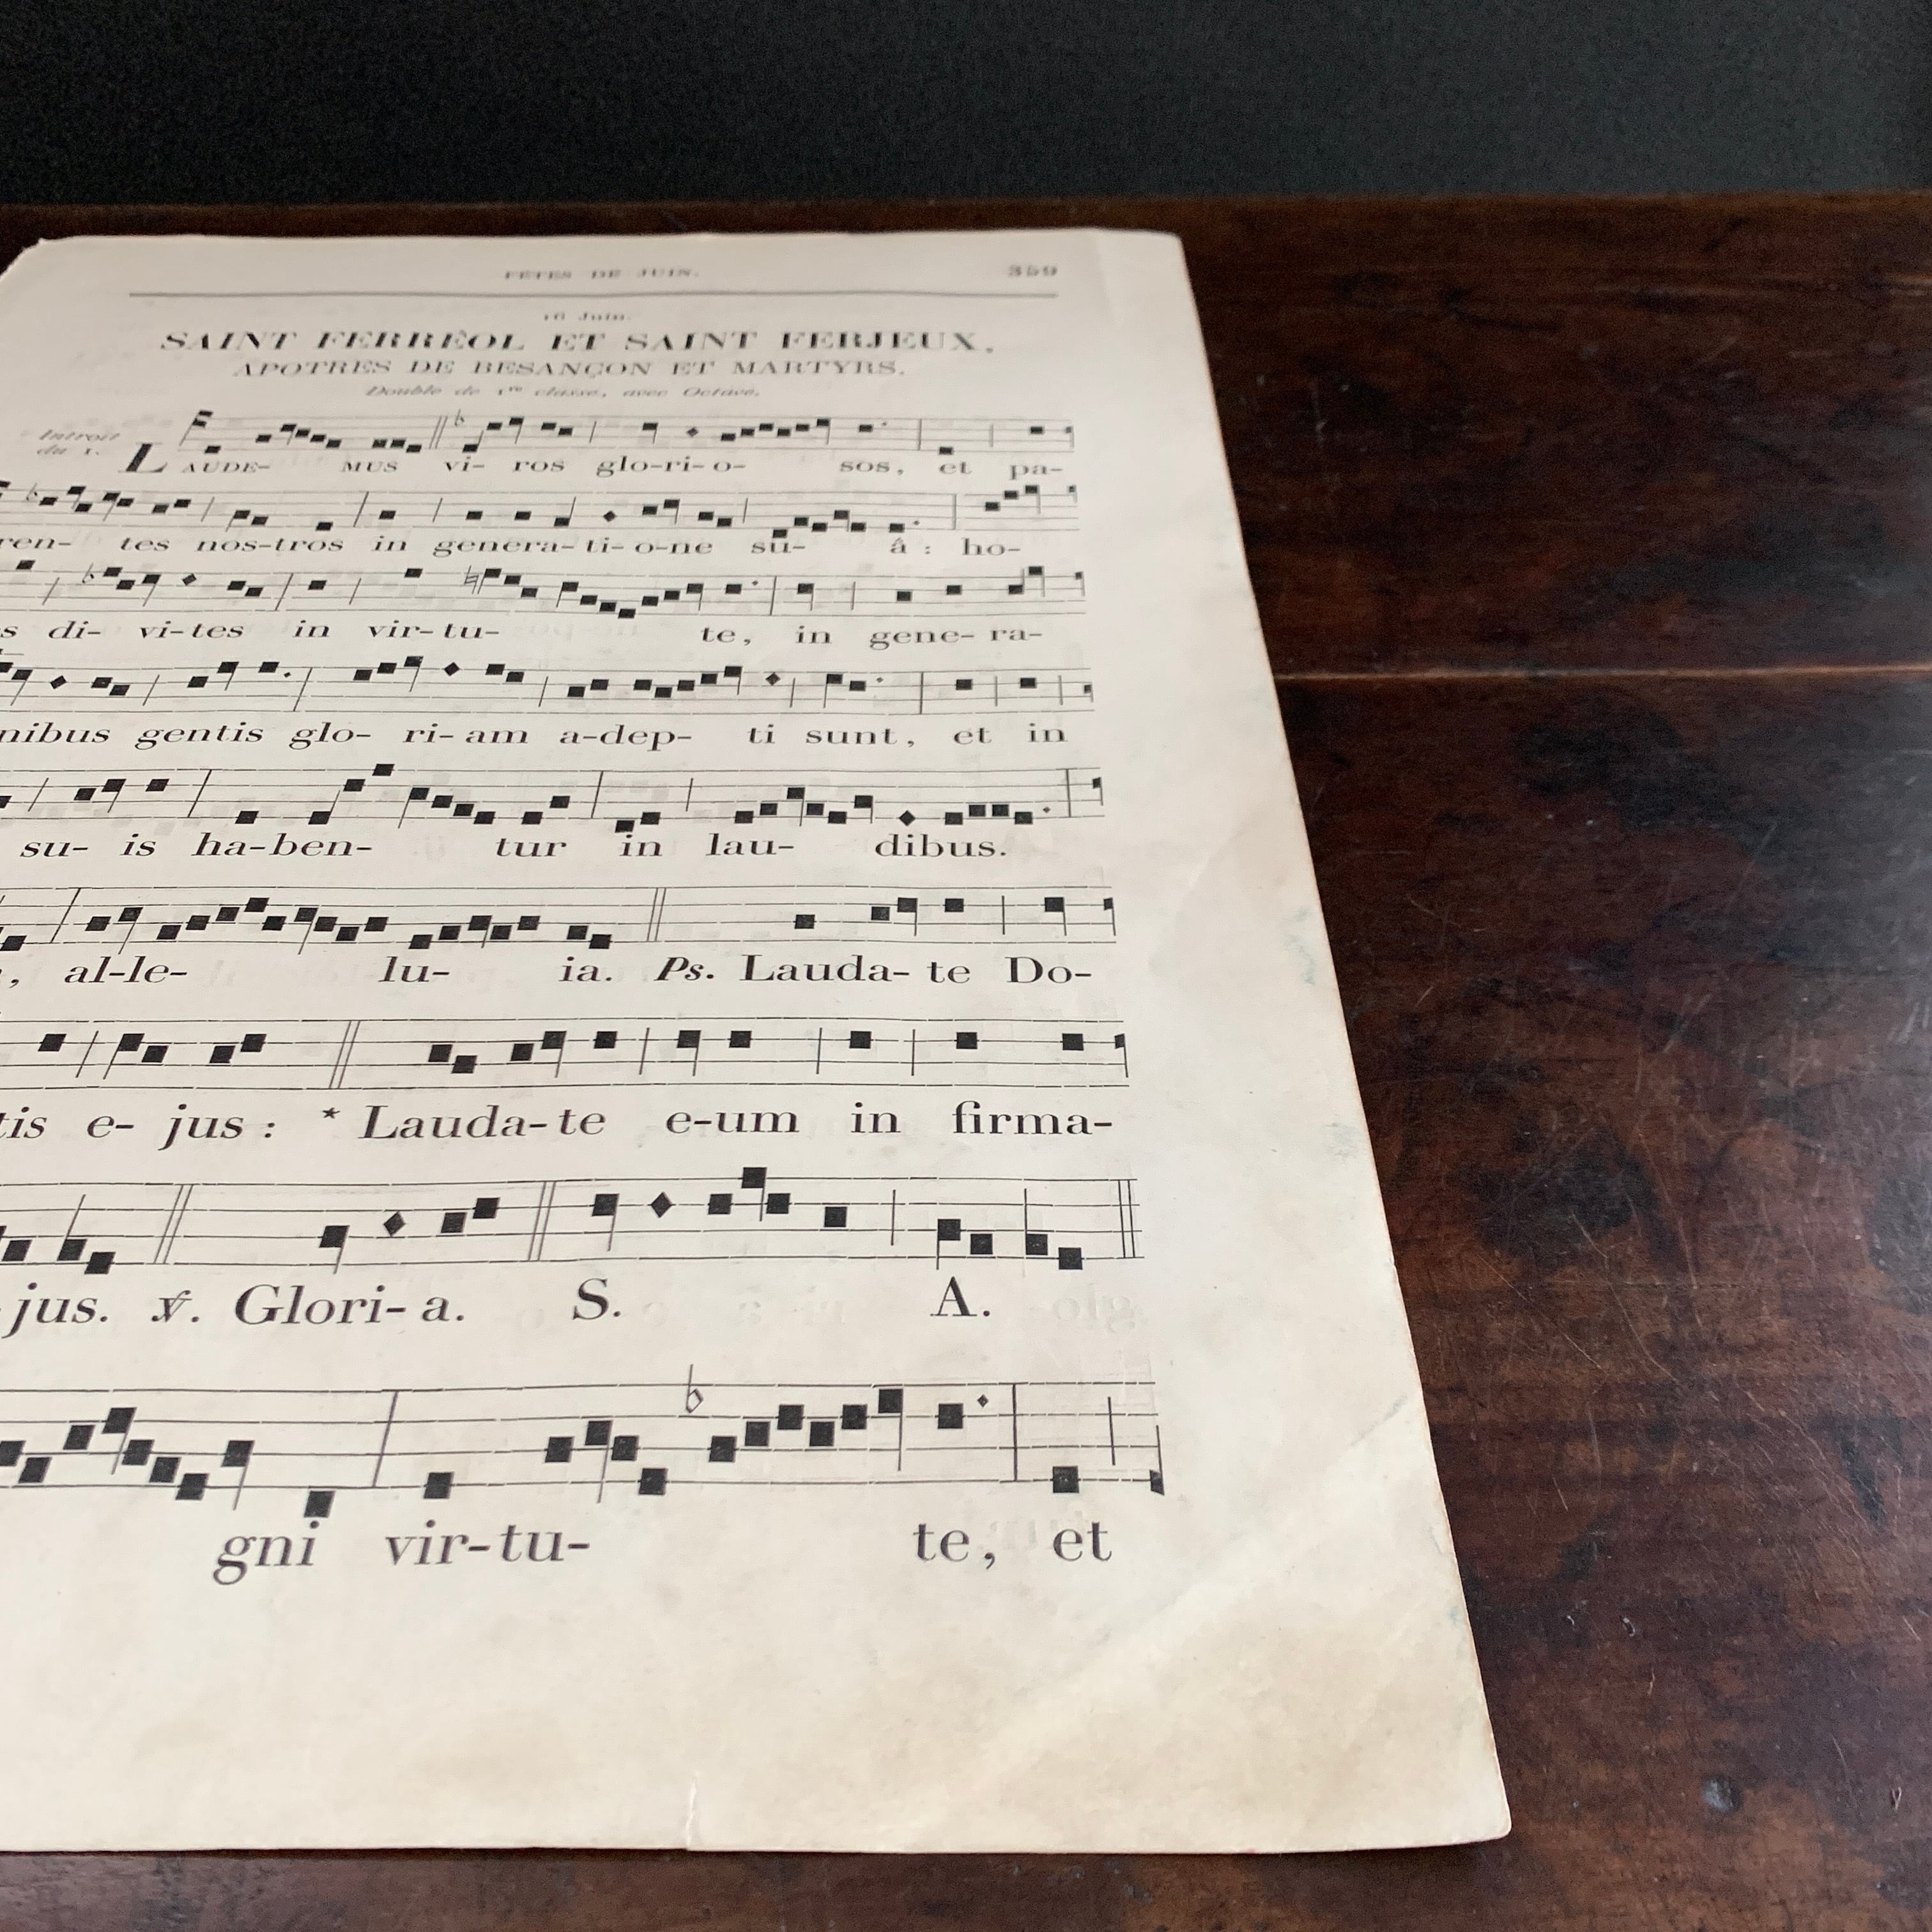 FETES DE JUIN. 359
16 Juin.
SAINT FERRÉOL ET SAINT FERJEUX,
APOTRES DE BESANÇON ET MARTYRS.
Double de 1re classe, avec Octave.
Introit
du 1.
LAUDE- MUS vi- ros glo-ri-o- sos, et pa-
ren- tes nos-tros in genera-ti-o-ne su- â : ho-
s di- vi-tes in vir-tu- te, in gene- ra-
nibus gentis glo- ri-am a-dep- ti sunt, et in
su- is ha-ben- tur in lau- dibus.
, al-le- lu- ia. Ps. Lauda- te Do-
tis e- jus : * Lauda-te e-um in firma-
jus. ℣. Glori- a. S. A.
gni vir-tu- te, et